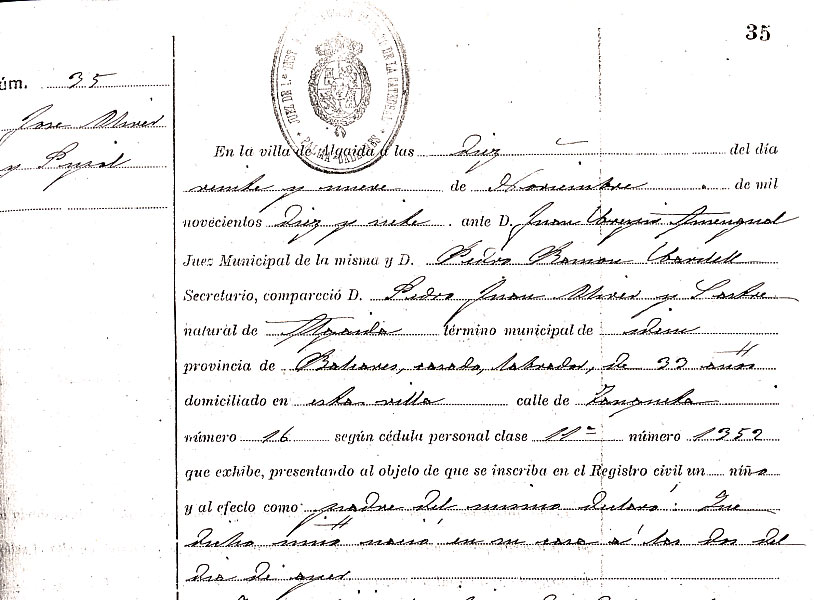 35
Núm. 35
José Oliver
y Pujol
JUEZ DE 1ª INST DE LA CATEDRAL
PALMA BALEARES
En la villa de Algaida a las Diez del día
veinte y nueve de Noviembre de mil
novecientos diez y siete. ante D. Juan Amengual
Juez Municipal de la misma y D. Pedro Ramon
Secretario, compareció D. Pedro Juan Oliver y Sastre
natural de Algaida término municipal de idem
provincia de Baleares, casado, labrador, de 32 años
domiciliado en esta villa calle de Tanqueta
número 16 según cédula personal clase 11ª número 1352
que exhibe, presentando al objeto de que se inscriba en el Registro civil un niño
y al efecto como padre del mismo declaró: Que
dicho niño nació en su casa a las dos del
dia de ayer